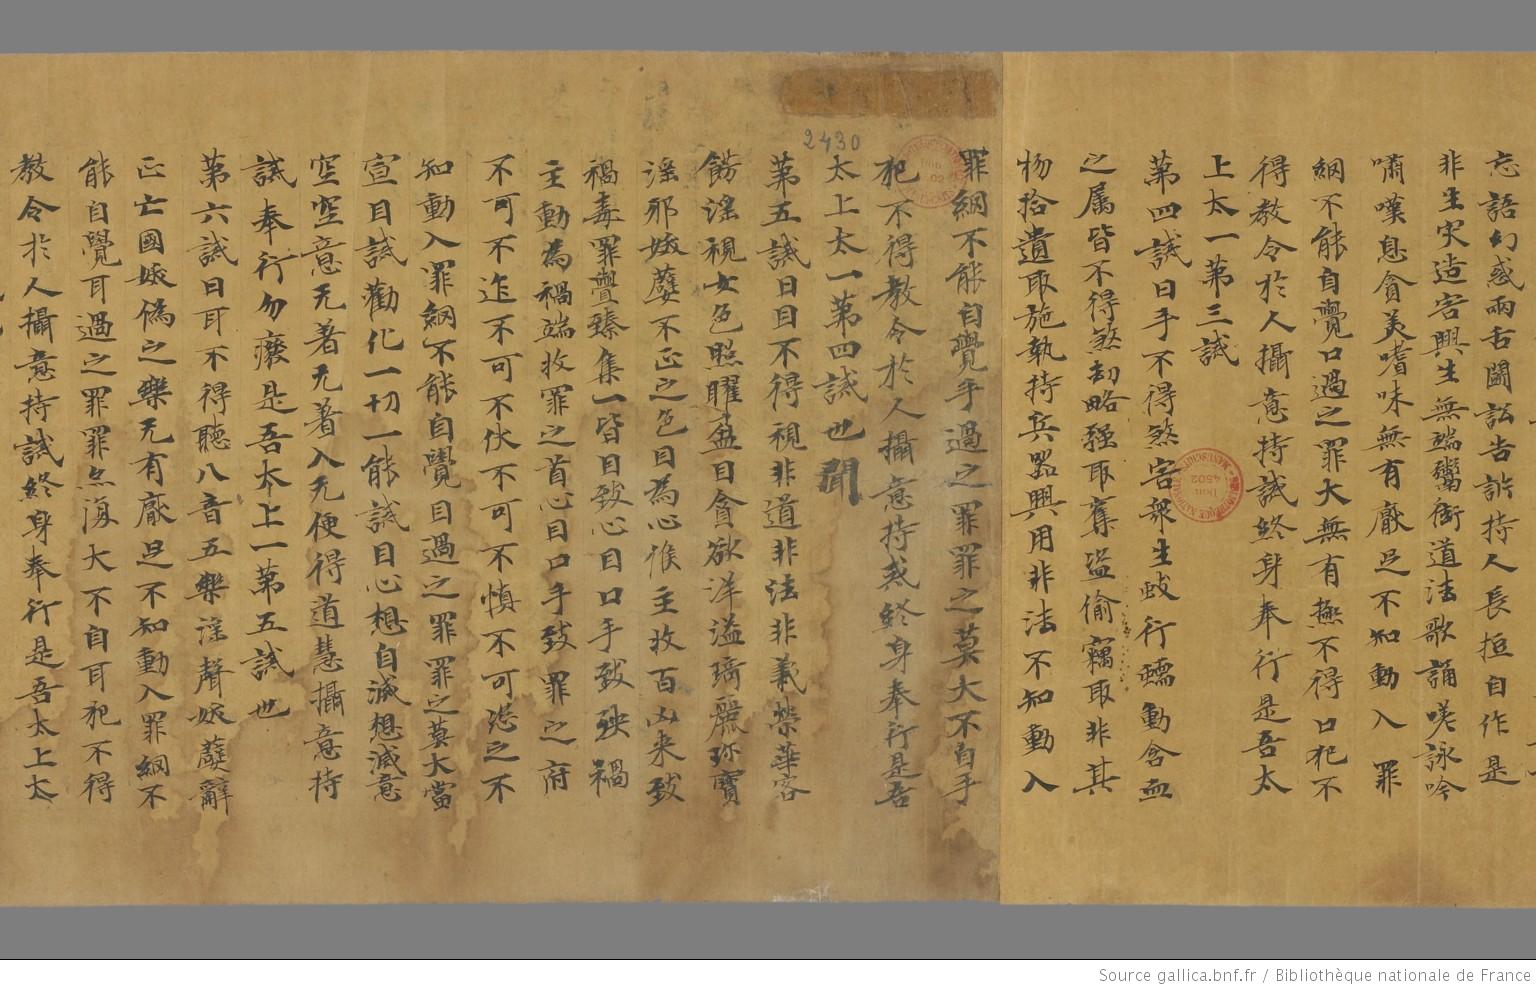 忘語幻惑兩舌鬭訟告訴持人長短自作是
非生灾造客興生無端鬻衒道法歌誦嗟詠吟
嘯嘆息貪美嗜味無有厭足不知動入罪
網不能自覺口過之罪大無有極不得口犯不
得教令於人攝意持誡終身奉行是吾太
上太一第三誡
第四誡曰手不得煞害衆生蚑行蠕動含血
之属皆不得煞劫略强取奪盜偷竊取非其
物拾遺取施執持兵器興用非法不知動入
罪網不能自覺手過之罪罪之莫大不自手
犯不得教令於人攝意持戒終身奉行是吾
太上太一第四誡也 聞
第五誡曰目不得視非道非法非義榮華容
餝淫視女色照曜盈目貪欲洋溢琦麗珎寶
淫邪妭孽不正之色目為心候主收百凶来致
禍毒罪疊臻集一皆目致心目口手致殃禍
主動為禍端收罪之首心目口手致罪之府
不可不迮不可不伏不可不慎不可恣之不
知動入罪網不能自覺目過之罪罪之莫大當
宣目誡勸化一切一能誡目心想自滅想滅意
空空意无著无著入无便得道慧攝意持
誡奉行勿癈是吾太上一第五誡也
第六誡曰耳不得聽八音五樂淫聲妭孽辭
正亡國妭偽之樂无有厭足不知動入罪網不
能自覺耳過之罪罪点復大不自耳犯不得
教令於人攝意持誡終身奉行是吾太上太
2430
Source gallica.bnf.fr / Bibliothèque nationale de France